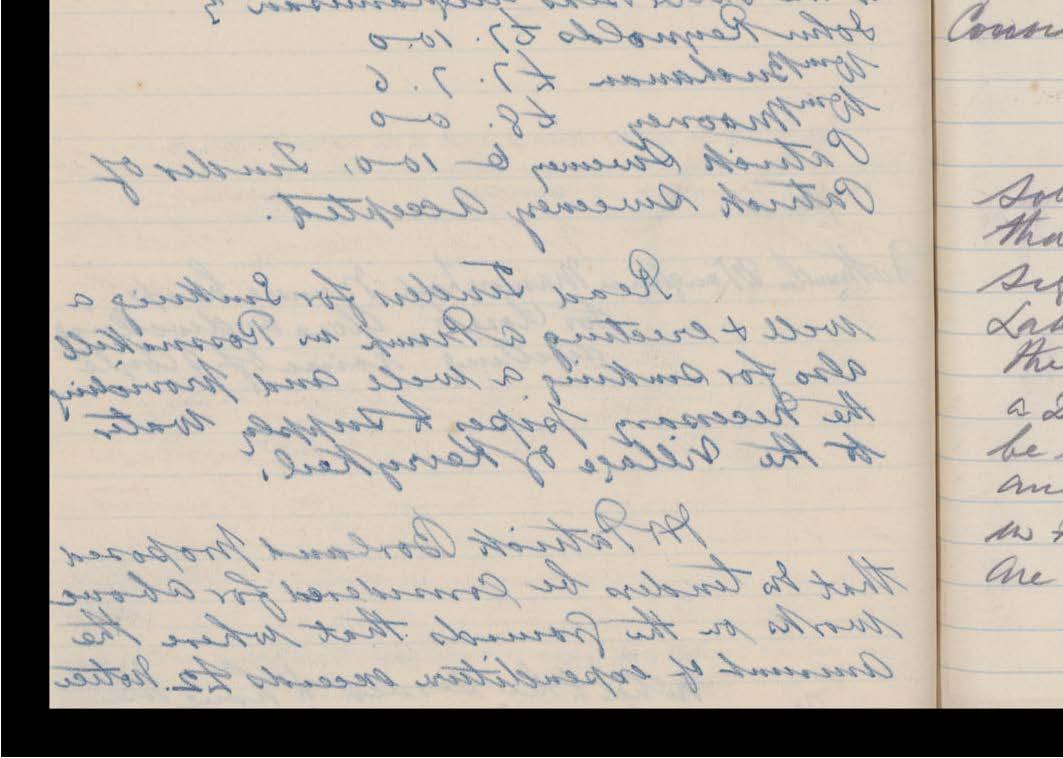 John Reynolds £7. 10. 0
Wm Buchanan £7. 7. 6
Wm Mooney £8. 0 0
Patrick Sweeney 6 10 0, Tender of
Patrick Sweeney Accepted.
Read Tenders for Sinking a
well & erecting a Pump in
also for sinking a well and providing
the necessary pipes to supply water
to the Village of Kerrykeel.
Mr Patrick Borland proposed
that no tenders be considered for above
works on the grounds that where the
amount of expenditure exceeds £2. notice
tha
the
a
be
are